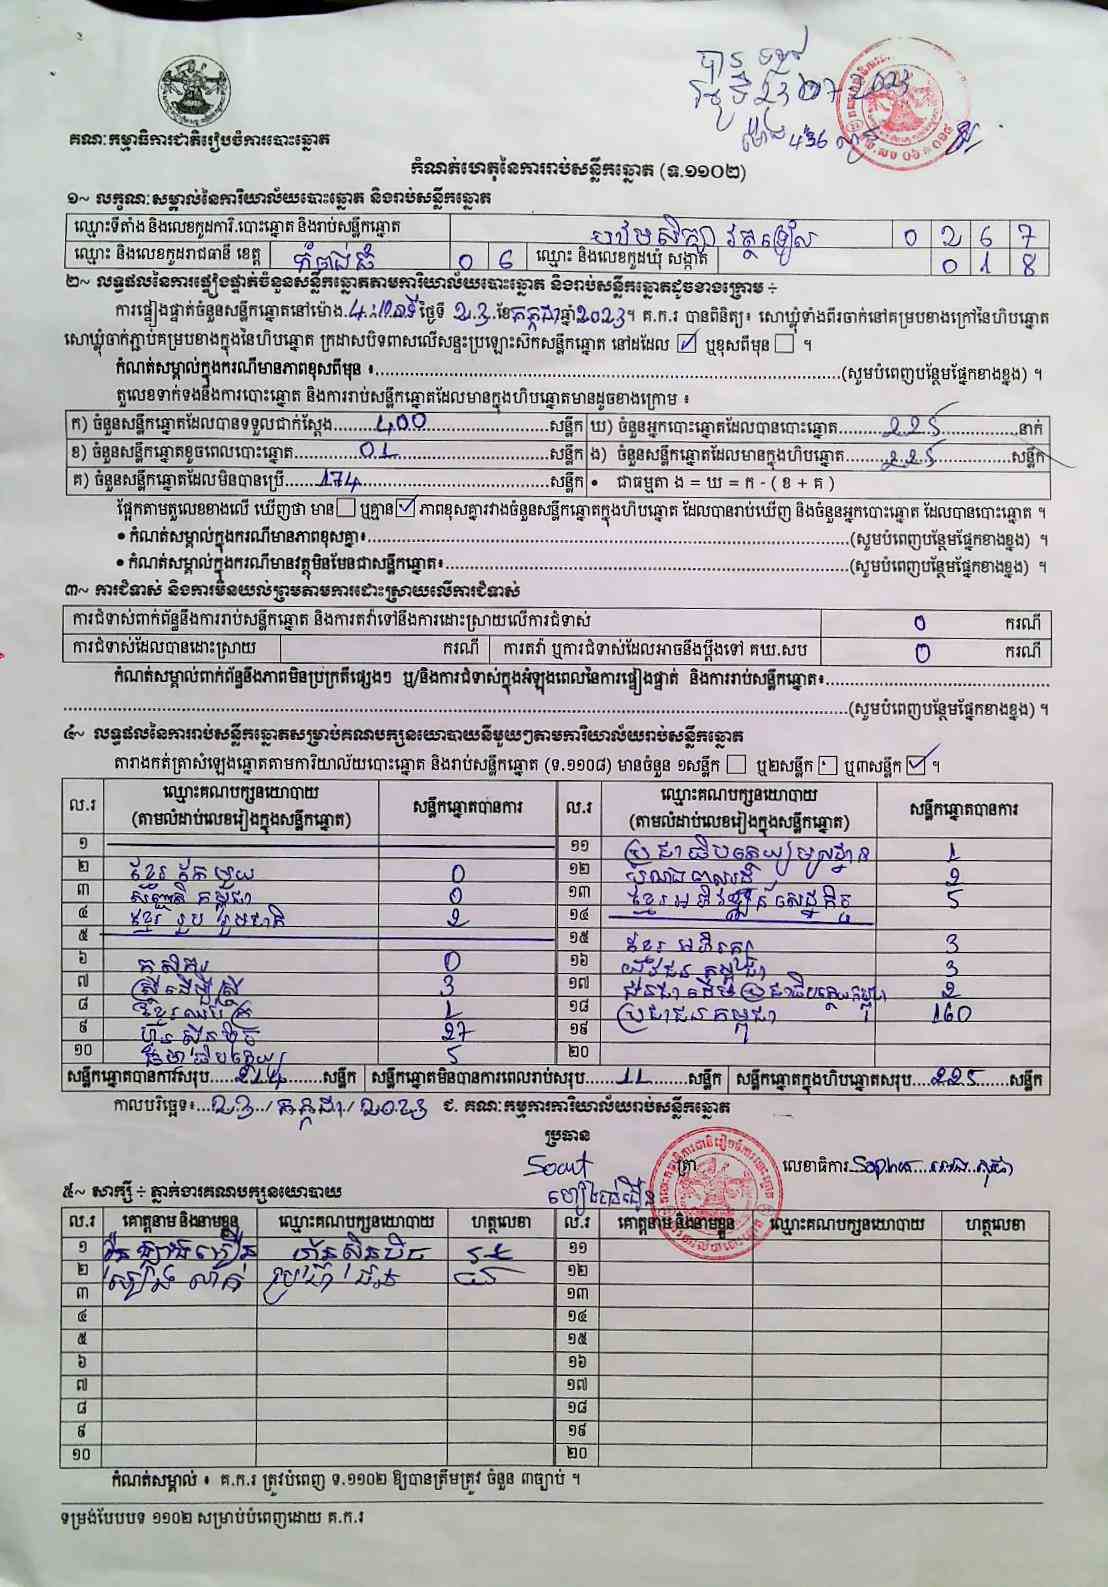 បាន ទទួល
ថ្ងៃទី23 07 2023
ម៉ោង 4:36 ល្ងាច
គណៈកម្មាធិការជាតិរៀបចំការបោះឆ្នោត
កំណត់ហេតុនៃការរាប់សន្លឹកឆ្នោត (ទ.១១០២)
១~ លក្ខណៈសម្គាល់នៃការិយាល័យបោះឆ្នោត និងរាប់សន្លឹកឆ្នោត
ឈ្មោះទីតាំង និងលេខកូដការិ.បោះឆ្នោត និងរាប់សន្លឹកឆ្នោត វត្ត 0 2 6 7
ឈ្មោះ និងលេខកូដរាជធានី ខេត្ត កំពង់ធំ 0 6 ឈ្មោះ និងលេខកូដឃុំ សង្កាត់ 0 1 8
២~ លទ្ធផលនៃការផ្ទៀងផ្ទាត់ចំនួនសន្លឹកឆ្នោតតាមការិយាល័យបោះឆ្នោត និងរាប់សន្លឹកឆ្នោតដូចខាងក្រោម ÷
ការផ្ទៀងផ្ទាត់ចំនួនសន្លឹកឆ្នោតនៅម៉ោង ថ្ងៃទី 23 ខែកក្កដាឆ្នាំ2023។ គ.ក.រ បានពិនិត្យ៖ សោឃ្លុំទាំងពីរចាក់នៅគម្របខាងក្រៅនៃហិបឆ្នោត
សោឃ្លុំចាក់ភ្ជាប់គម្របខាងក្នុងនៃហិបឆ្នោត ក្រដាសបិទពាសលើសន្ទះប្រឡោះសឹកសន្លឹកឆ្នោត នៅដដែល ☑ ឬខុសពីមុន ☐ ។
កំណត់សម្គាល់ក្នុងករណីមានភាពខុសពីមុន ៖.....(សូមបំពេញបន្ថែមផ្នែកខាងខ្នង) ។
តួលេខទាក់ទងនឹងការបោះឆ្នោត និងការរាប់សន្លឹកឆ្នោតដែលមានក្នុងហិបឆ្នោតមានដូចខាងក្រោម ៖
ក) ចំនួនសន្លឹកឆ្នោតដែលបានទទួលជាក់ស្តែង.....400.....សន្លឹក ឃ) ចំនួនអ្នកបោះឆ្នោតដែលបានបោះឆ្នោត.....225.....នាក់
ខ) ចំនួនសន្លឹកឆ្នោតខូចពេលបោះឆ្នោត.....01.....សន្លឹក ង) ចំនួនសន្លឹកឆ្នោតដែលមានក្នុងហិបឆ្នោត.....225.....សន្លឹក
គ) ចំនួនសន្លឹកឆ្នោតដែលមិនបានប្រើ.....174.....សន្លឹក • ជាធម្មតា ង = ឃ = ក - ( ខ + គ )
ផ្អែកតាមតួលេខខាងលើ ឃើញថា មាន☐ ឬគ្មាន☑ ភាពខុសគ្នារវាងចំនួនសន្លឹកឆ្នោតក្នុងហិបឆ្នោត ដែលបានរាប់ឃើញ និងចំនួនអ្នកបោះឆ្នោត ដែលបានបោះឆ្នោត ។
• កំណត់សម្គាល់ក្នុងករណីមានភាពខុសគ្នា៖.....(សូមបំពេញបន្ថែមផ្នែកខាងខ្នង) ។
• កំណត់សម្គាល់ក្នុងករណីមានវត្ថុមិនមែនជាសន្លឹកឆ្នោត៖.....(សូមបំពេញបន្ថែមផ្នែកខាងខ្នង) ។
៣~ ការជំទាស់ និងការមិនយល់ព្រមតាមការដោះស្រាយលើការជំទាស់
ការជំទាស់ពាក់ព័ន្ធនឹងការរាប់សន្លឹកឆ្នោត និងការតវ៉ាទៅនឹងការដោះស្រាយលើការជំទាស់ 0 ករណី
ការជំទាស់ដែលបានដោះស្រាយ ករណី ការតវ៉ា ឬការជំទាស់ដែលអាចនឹងប្តឹងទៅ គឃ.សប 0 ករណី
កំណត់សម្គាល់ពាក់ព័ន្ធនឹងភាពមិនប្រក្រតីផ្សេងៗ ឬ/និងការជំទាស់ក្នុងអំឡុងពេលនៃការផ្ទៀងផ្ទាត់ និងការរាប់សន្លឹកឆ្នោត៖.....
.....(សូមបំពេញបន្ថែមផ្នែកខាងខ្នង) ។
៤~ លទ្ធផលនៃការរាប់សន្លឹកឆ្នោតសម្រាប់គណបក្សនយោបាយនីមួយៗតាមការិយាល័យរាប់សន្លឹកឆ្នោត
តារាងកត់ត្រាសំឡេងឆ្នោតតាមការិយាល័យបោះឆ្នោត និងរាប់សន្លឹកឆ្នោត (ទ.១១០៨) មានចំនួន ១សន្លឹក ☐ ឬ២សន្លឹក ☐ ឬ៣សន្លឹក ☑ ។
ល.រ ឈ្មោះគណបក្សនយោបាយ (តាមលំដាប់លេខរៀងក្នុងសន្លឹកឆ្នោត) សន្លឹកឆ្នោតបានការ ល.រ ឈ្មោះគណបក្សនយោបាយ (តាមលំដាប់លេខរៀងក្នុងសន្លឹកឆ្នោត) សន្លឹកឆ្នោតបានការ
១ ១១ ប្រជាធិបតេយ្យមូលដ្ឋាន 1
២ ខ្មែរ តែមួយ 0 ១២ 2
៣ សញ្ជាតិ កម្ពុជា 0 ១៣ ខ្មែរអភិវឌ្ឍន៍សេដ្ឋកិច្ច 5
៤ ខ្មែរ រួប រួមជាតិ 2 ១៤
៥ ១៥ ខ្មែរ អភិរក្ស 3
៦ កសិករ 0 ១៦ យុវជន កម្ពុជា 3
៧ ស្ត្រីដើម្បីស្ត្រី 3 ១៧ ជនជាតិដើមប្រជាធិបតេយ្យកម្ពុជា 2
៨ ខ្មែរឈប់ក្រ 1 ១៨ ប្រជាជនកម្ពុជា 160
៩ ហ៊្វុនស៊ិនប៉ិច 27 ១៩
១០ 5 ២០
សន្លឹកឆ្នោតបានការសរុប.....214.....សន្លឹក សន្លឹកឆ្នោតមិនបានការពេលរាប់សរុប.....11.....សន្លឹក សន្លឹកឆ្នោតក្នុងហិបឆ្នោតសរុប.....225.....សន្លឹក
កាលបរិច្ឆេទ៖...23./កក្កដា/2023 ជ. គណៈកម្មការការិយាល័យរាប់សន្លឹកឆ្នោត
ប្រធាន
ត្រា លេខាធិការ
៥~ សាក្សី ÷ ភ្នាក់ងារគណបក្សនយោបាយ
ល.រ គោត្តនាម និងនាមខ្លួន ឈ្មោះគណបក្សនយោបាយ ហត្ថលេខា ល.រ គោត្តនាម និងនាមខ្លួន ឈ្មោះគណបក្សនយោបាយ ហត្ថលេខា
១ ហ៊្វុនស៊ិនប៉ិច ១១
២ ១២
៣ ១៣
៤ ១៤
៥ ១៥
៦ ១៦
៧ ១៧
៨ ១៨
៩ ១៩
១០ ២០
កំណត់សម្គាល់ ៖ គ.ក.រ ត្រូវបំពេញ ទ.១១០២ ឱ្យបានត្រឹមត្រូវ ចំនួន ៣ច្បាប់ ។
ទម្រង់បែបបទ ១១០២ សម្រាប់បំពេញដោយ គ.ក.រ